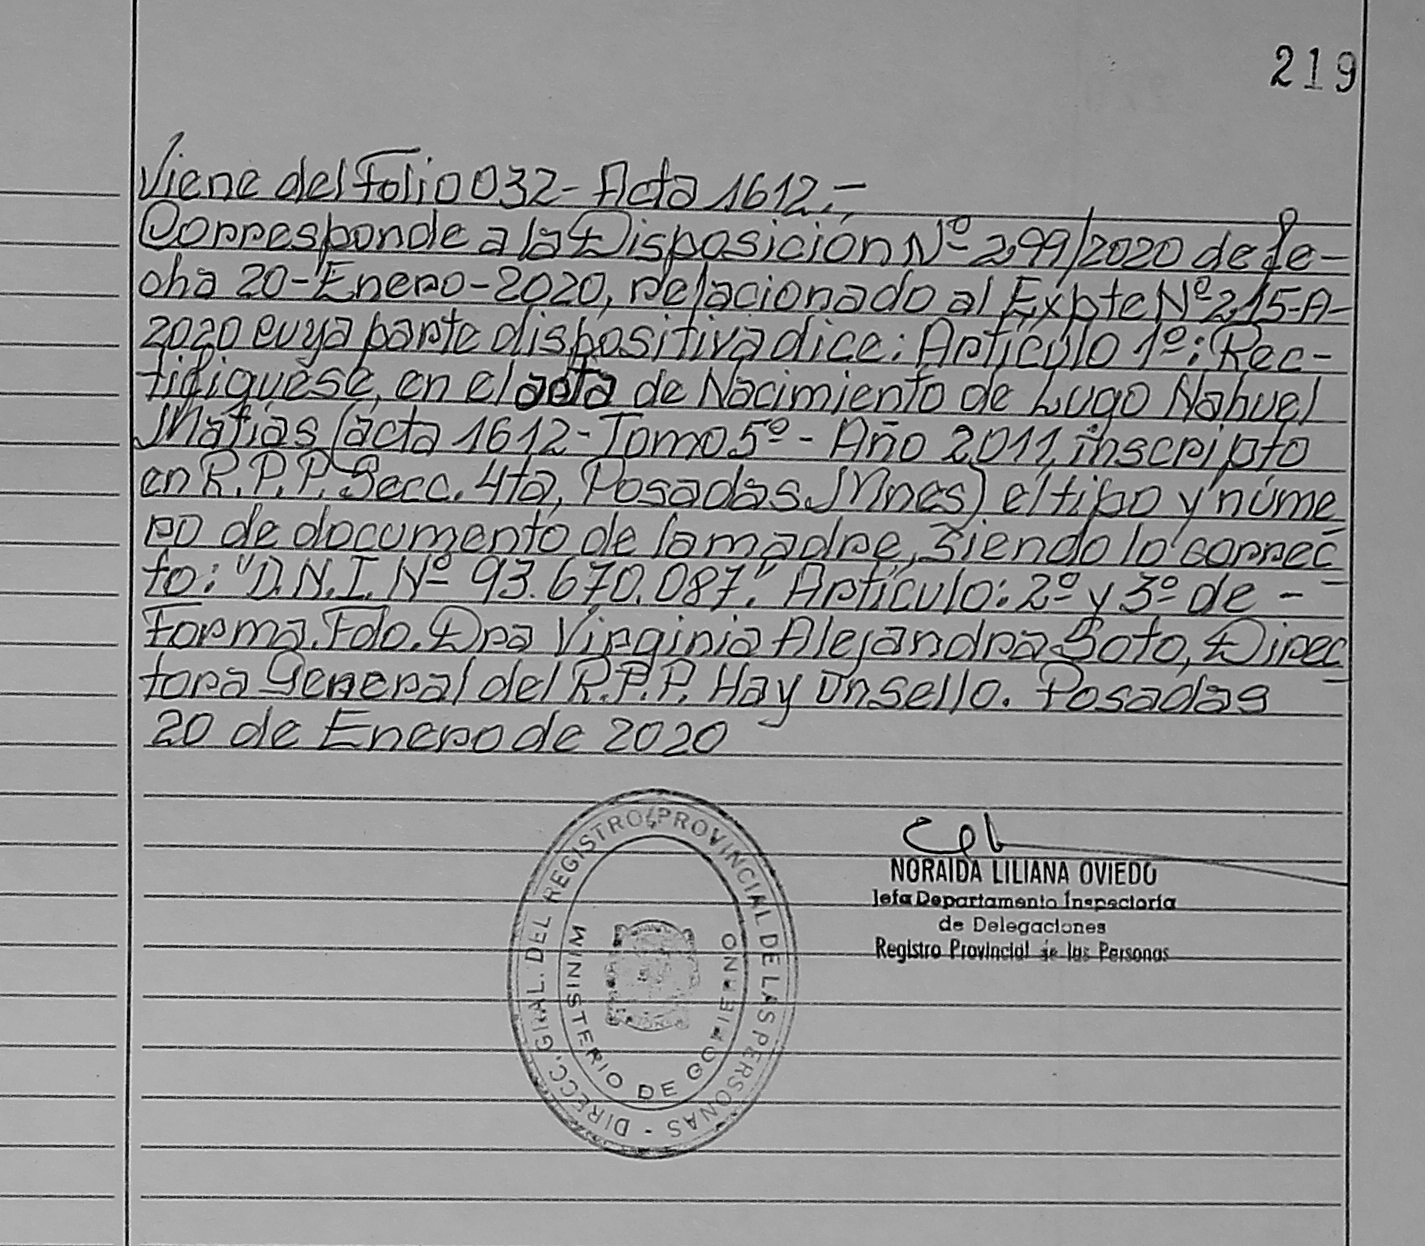 219
Viene del Folio 032- Acta 1612.-
Corresponde a la Disposición Nº 299/2020 de fe-
cha 20-Enero-2020, relacionado al Expte Nº 215-A-
2020 cuya parte dispositiva dice: Artículo 1º: Rec-
tifiquése, en el acta de Nacimiento de Lugo Nahuel
Matías (acta 1612-Tomo 5º- Año 2011, inscripto
en R.P.P. Secc. 4ta, Posadas Mnes) el tipo y núme
ro de documento de la madre, siendo lo correc
to: "D.N.I. Nº 93.670.087." Artículo: 2º y 3º de -
Forma. Fdo. Dra Virginia Alejandra Soto, Direc
tora General del R.P.P. Hay un sello. Posadas
20 de Enero de 2020
DIRECC. GRAL. DEL REGISTRO PROVINCIAL DE LAS PERSONAS -
MINISTERIO DE GOBIERNO
NORAIDA LILIANA OVIEDO
Jefa Departamento Inspectoría
de Delegaciones
Registro Provincial de las Personas